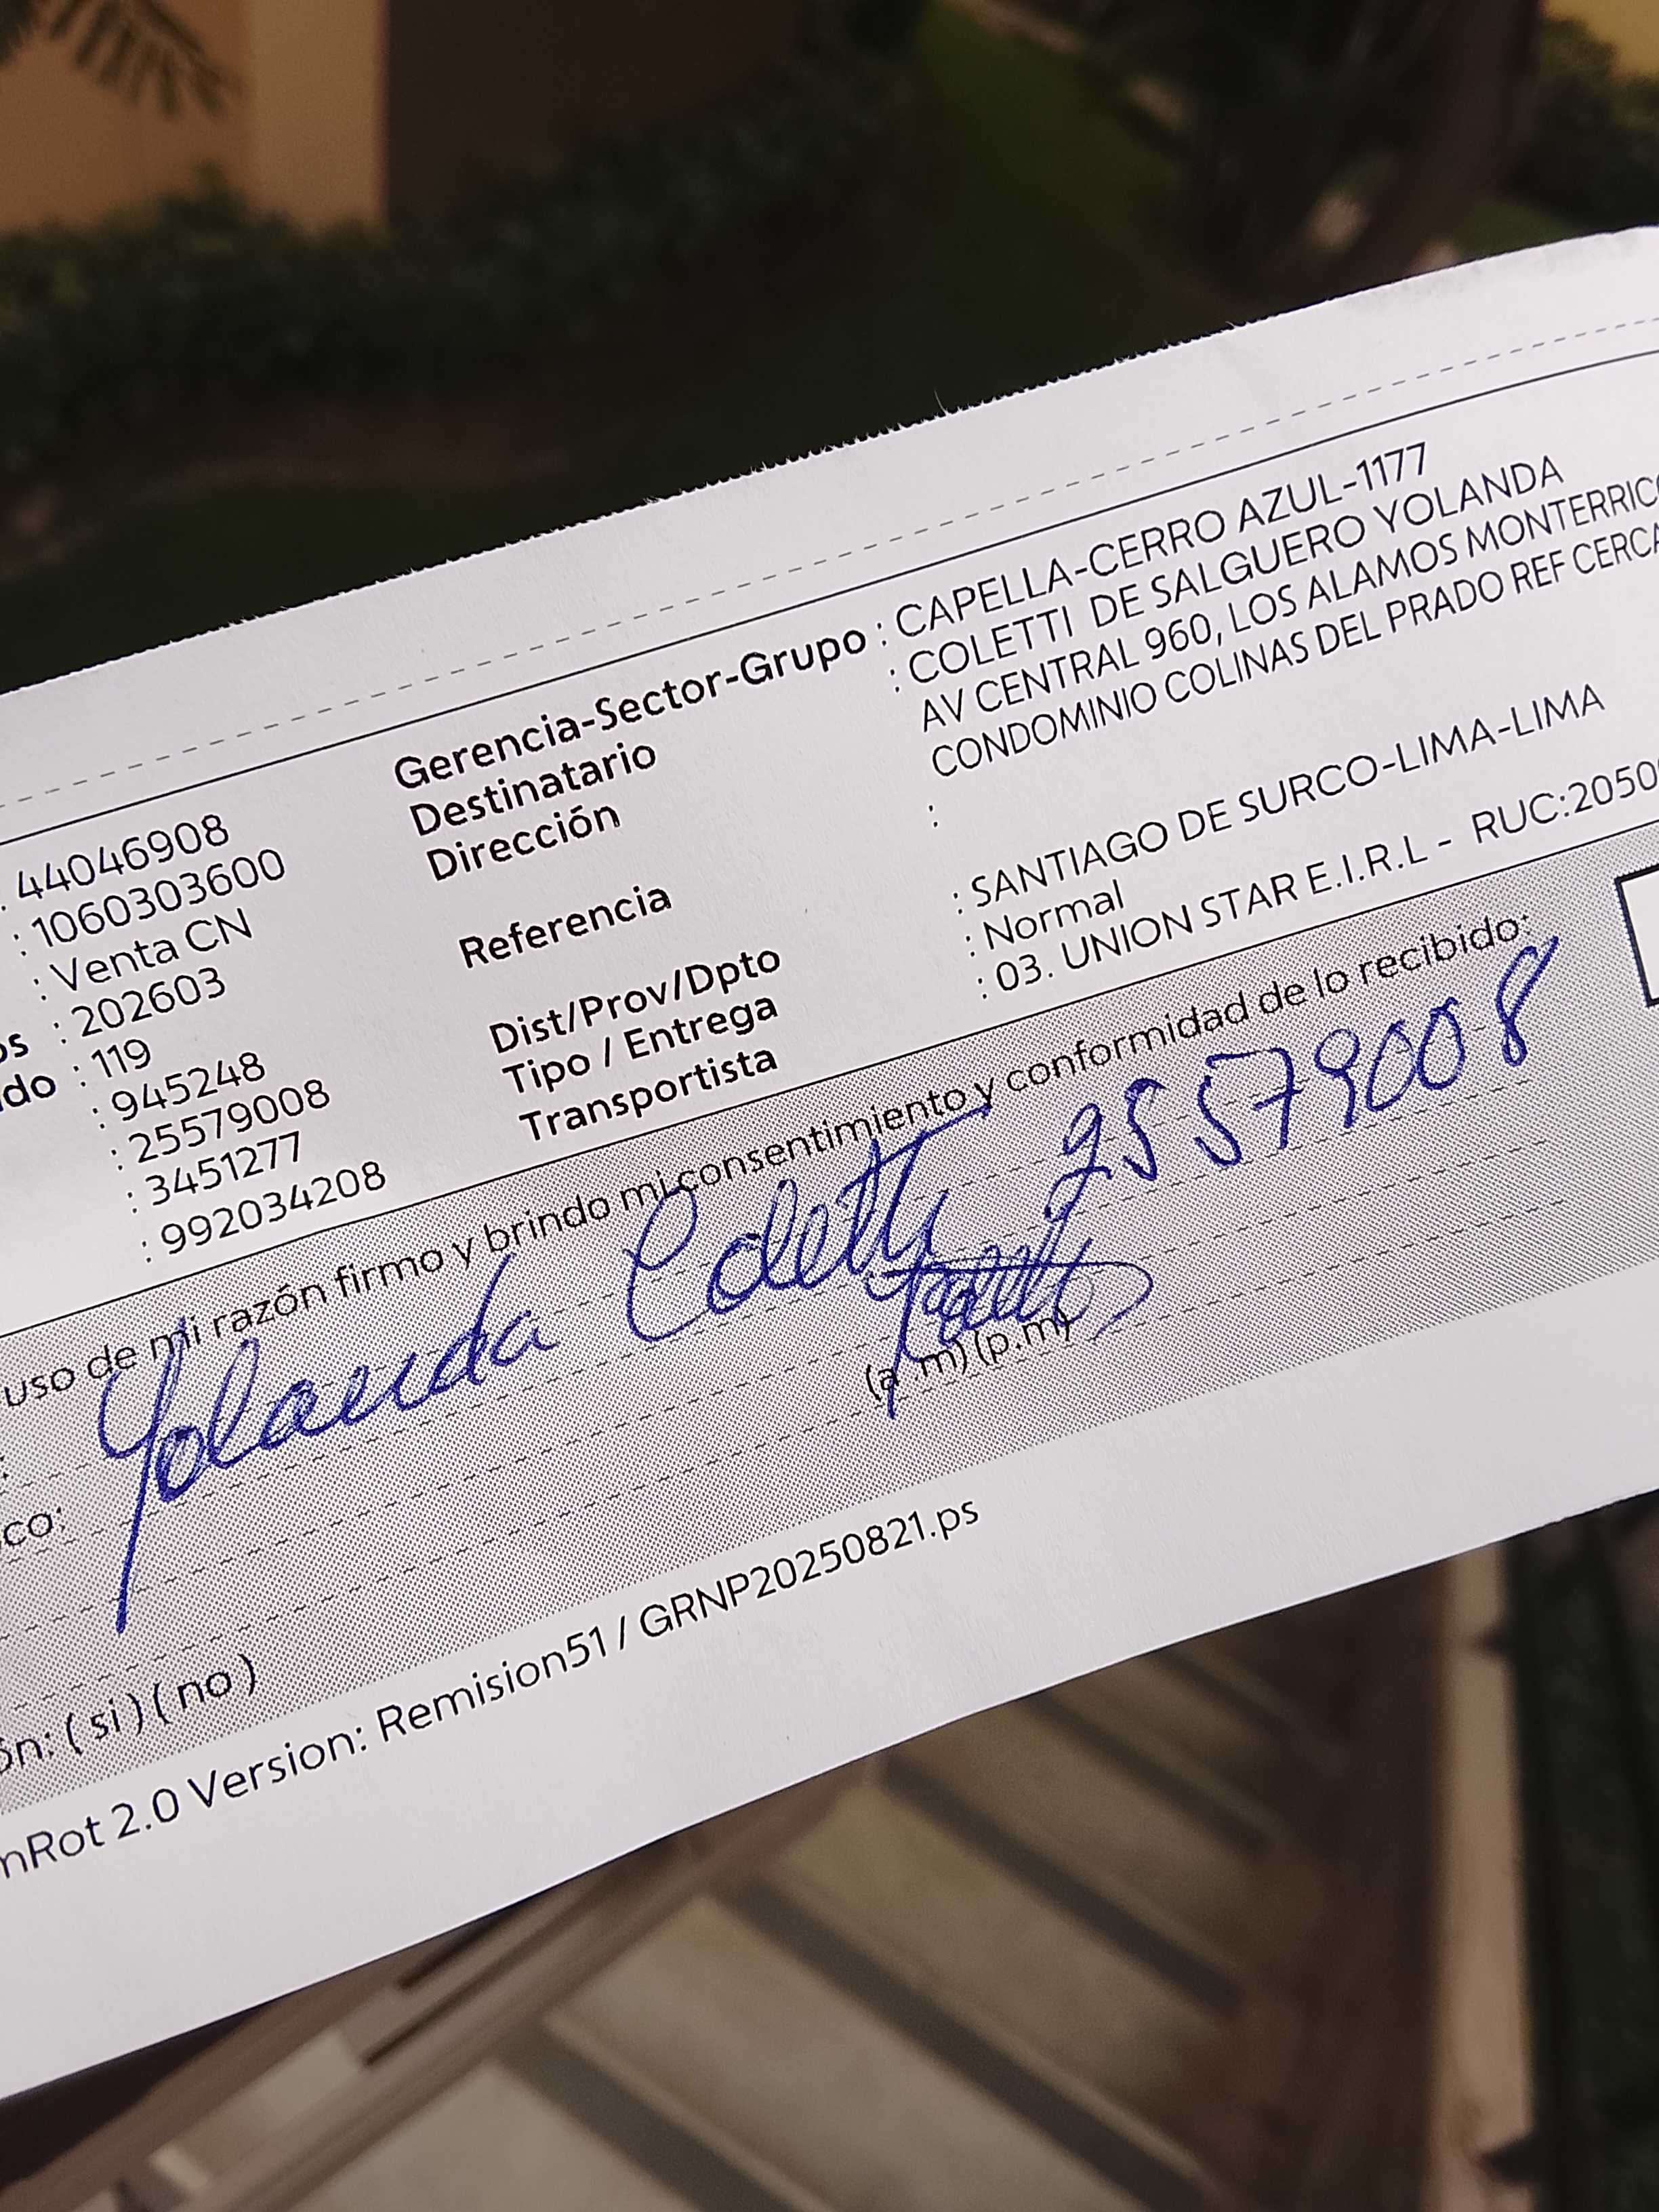 : 44046908
: 1060303600
: Venta CN
os : 202603
do : 119
: 945248
: 25579008
: 3451277
: 992034208
Gerencia-Sector-Grupo : CAPELLA-CERRO AZUL-1177
Destinatario : COLETTI DE SALGUERO YOLANDA
Dirección : AV CENTRAL 960, LOS ALAMOS MONTERRICO
CONDOMINIO COLINAS DEL PRADO REF CERCA
Referencia :
Dist/Prov/Dpto : SANTIAGO DE SURCO-LIMA-LIMA
Tipo / Entrega : Normal
Transportista : 03. UNION STAR E.I.R.L - RUC:2050
uso de mi razón firmo y brindo mi consentimiento y conformidad de lo recibido:
Yolanda Coletti 25579008
co:
(a.m) (p.m)
ón: ( si ) ( no )
mRot 2.0 Version: Remision51 / GRNP20250821.ps